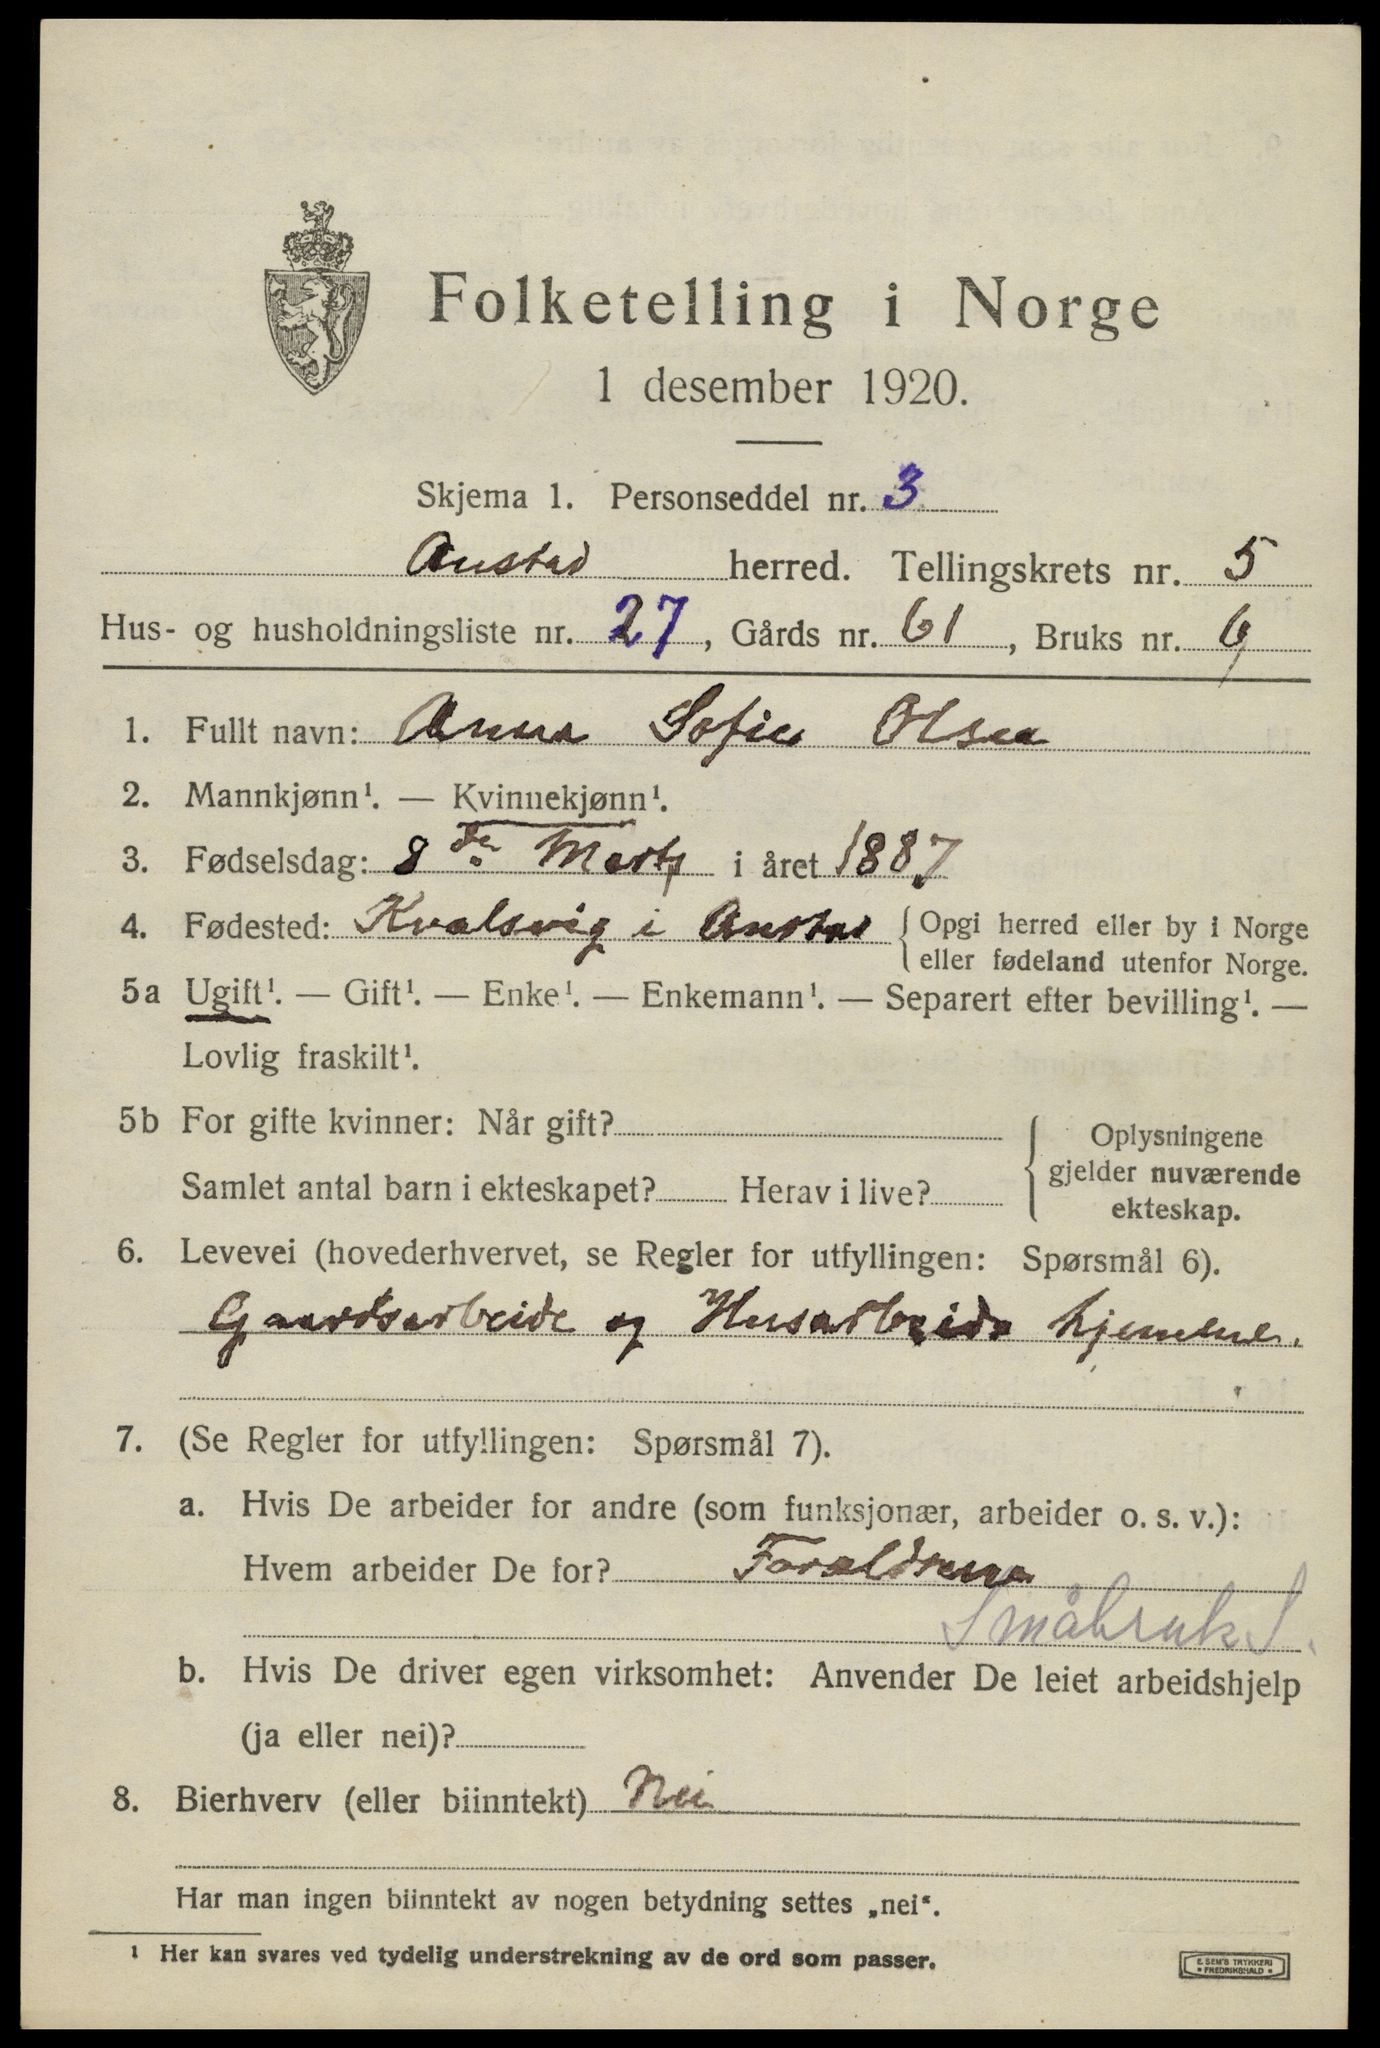 Folketelling i Norge
1 desember 1920.
Skjema 1. Personseddel nr. 3
Anstad herred. Tellingskrets nr. 5
Hus- og husholdningsliste nr. 27, Gårds nr. 61, Bruks nr. 6
1. Fullt navn: Anna Sofie Olsen
2. Mannkjønn¹. — Kvinnekjønn¹.
3. Fødselsdag: 8de Marts i året 1887
4. Fødested: Kvalsvig i Anstad { Opgi herred eller by i Norge
eller fødeland utenfor Norge.
5a Ugift¹. — Gift¹. — Enke¹. — Enkemann¹. — Separert efter bevilling¹. —
Lovlig fraskilt¹.
5b For gifte kvinner: Når gift?
Samlet antal barn i ekteskapet? Herav i live?
{ Oplysningene
gjelder nuværende
ekteskap.
6. Levevei (hovederhvervet, se Regler for utfyllingen: Spørsmål 6).
Gaardsarbeide og Husarbeide hjemme.
7. (Se Regler for utfyllingen: Spørsmål 7).
a. Hvis De arbeider for andre (som funksjonær, arbeider o. s. v.):
Hvem arbeider De for? Forældrene
Småbruk S.
b. Hvis De driver egen virksomhet: Anvender De leiet arbeidshjelp
(ja eller nei)?
8. Bierhverv (eller biinntekt) Nei
Har man ingen biinntekt av nogen betydning settes „nei“.
¹ Her kan svares ved tydelig understrekning av de ord som passer.
E. SEM'S TRYKKERI
FREDRIKSHALD